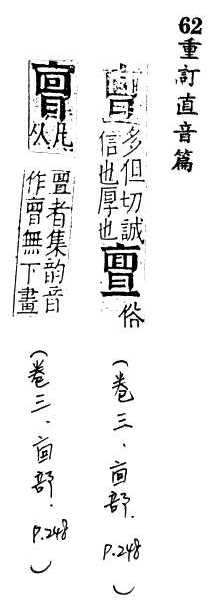 62 重訂直音篇
亶 多但切誠
信也厚也
亶 俗
(卷三、㐭部. P.248)
凡
从
亶者集韵音
作 無下畫
(卷三、㐭部. P.248)